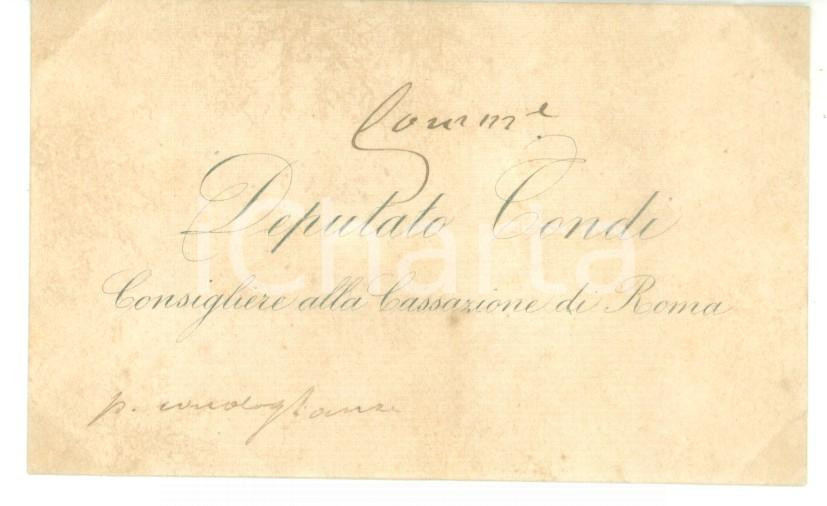 Comm.e
Deputato Tondi
Consigliere alla Cassazione di Roma
iCharta
p. condoglianze